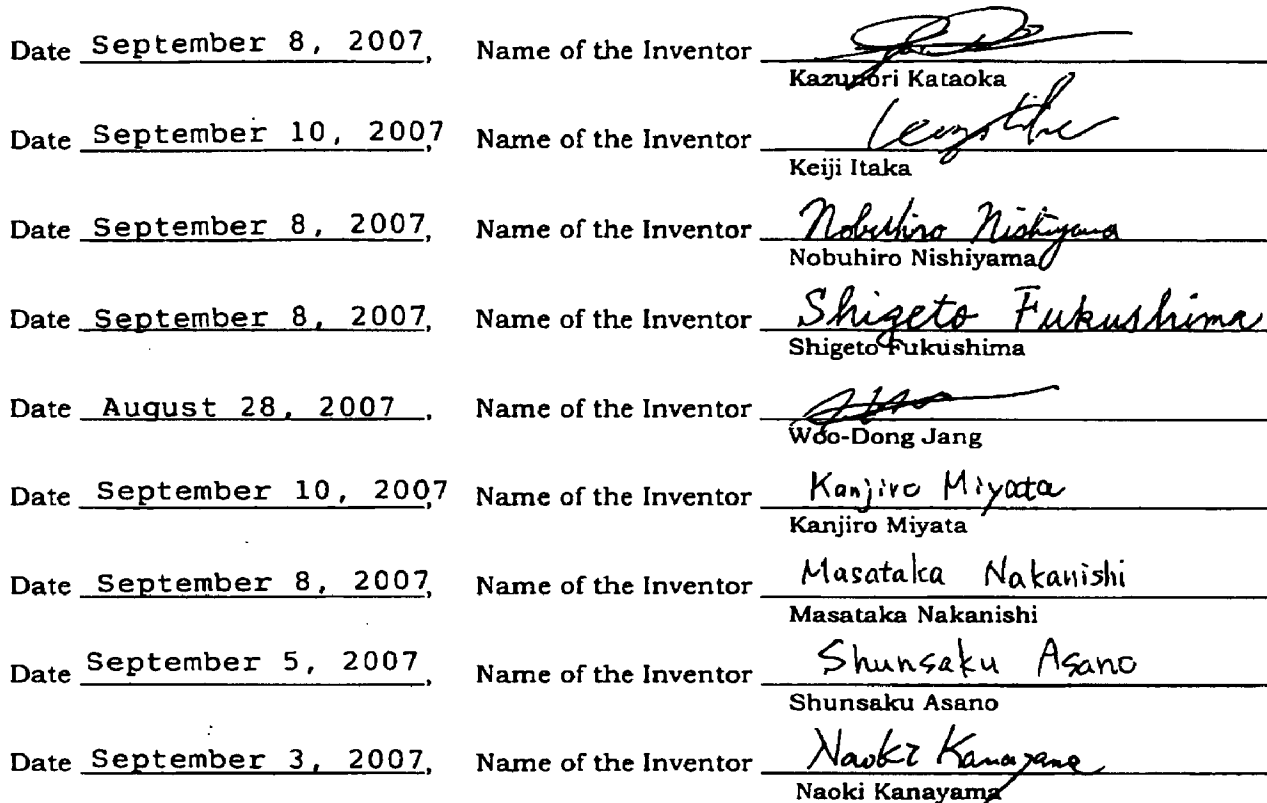 Date September 8, 2007, Name of the Inventor
Kazunori Kataoka
Date September 10, 2007, Name of the Inventor
Keiji Itaka
Date September 8, 2007, Name of the Inventor Nobuhiro Nishiyama
Nobuhiro Nishiyama
Date September 8, 2007, Name of the Inventor Shigeto Fukushima
Shigeto Fukushima
Date August 28, 2007, Name of the Inventor
Woo-Dong Jang
Date September 10, 2007, Name of the Inventor Kanjiro Miyata
Kanjiro Miyata
Date September 8, 2007, Name of the Inventor Masataka Nakanishi
Masataka Nakanishi
Date September 5, 2007, Name of the Inventor Shunsaku Asano
Shunsaku Asano
Date September 3, 2007, Name of the Inventor Naoki Kanayama
Naoki Kanayama